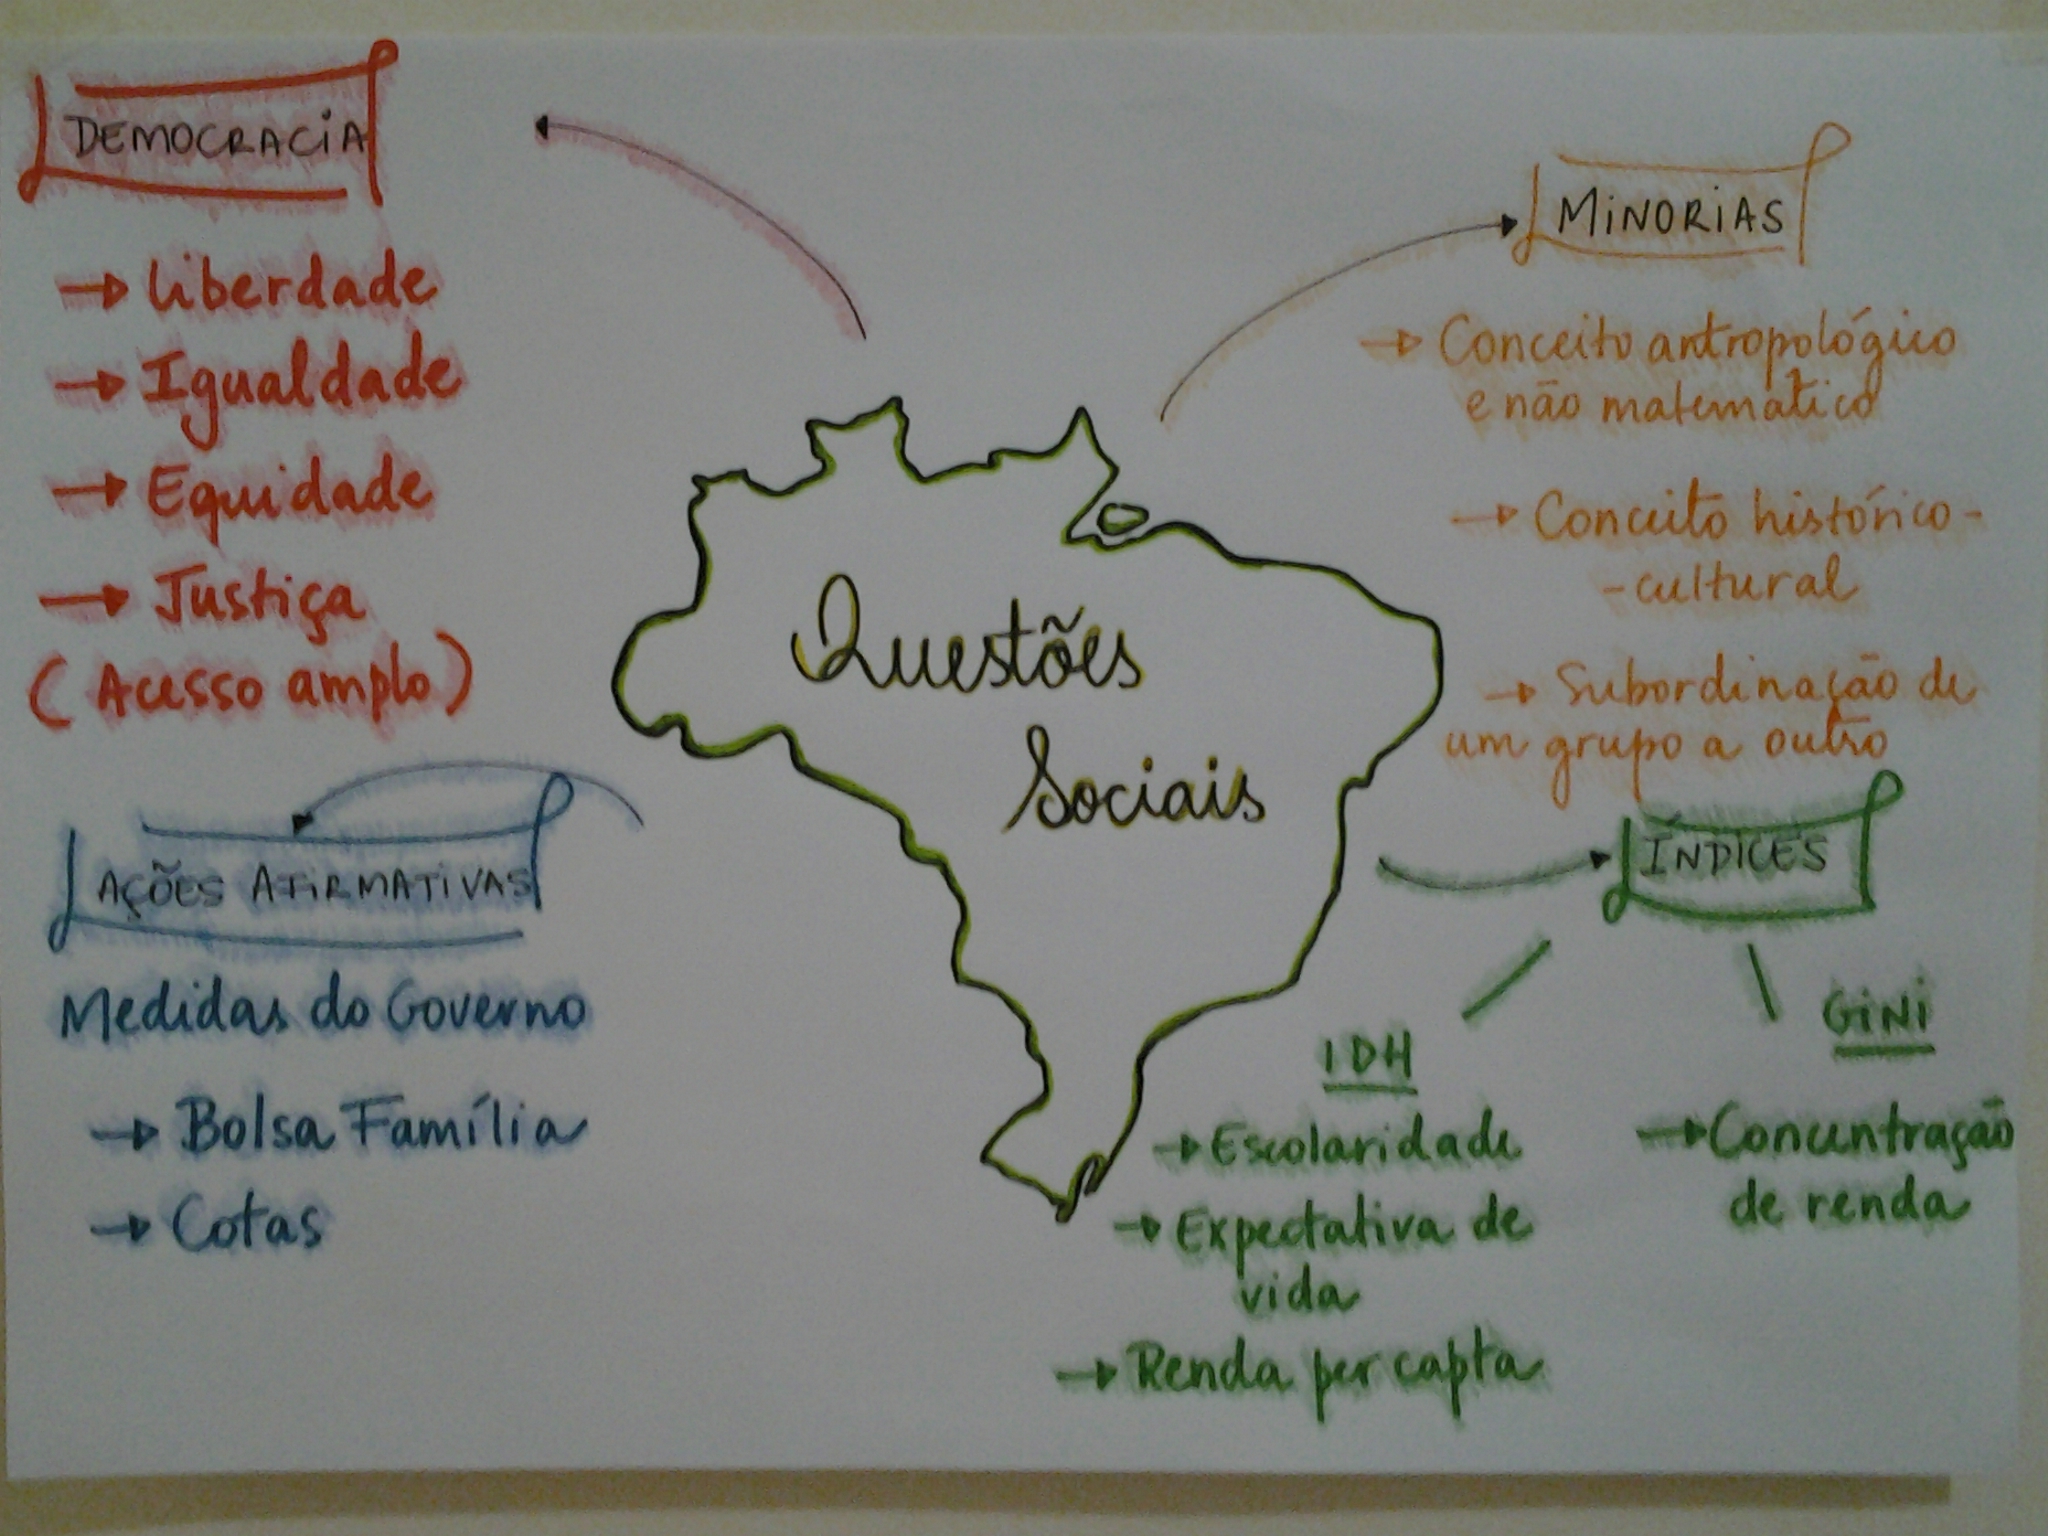 DEMOCRACIA
→ Liberdade
→ Igualdade
→ Equidade
→ Justiça
(Acesso amplo)
AÇÕES AFIRMATIVAS
Medidas do Governo
→ Bolsa Família
→ Cotas
Questões
Sociais
MINORIAS
→ Conceito antropológico
e não matemático
→ Conceito histórico-
-cultural
→ Subordinação de
um grupo a outro
ÍNDICES
IDH
→ Escolaridade
→ Expectativa de
vida
→ Renda per capta
GINI
→ Concentração
de renda